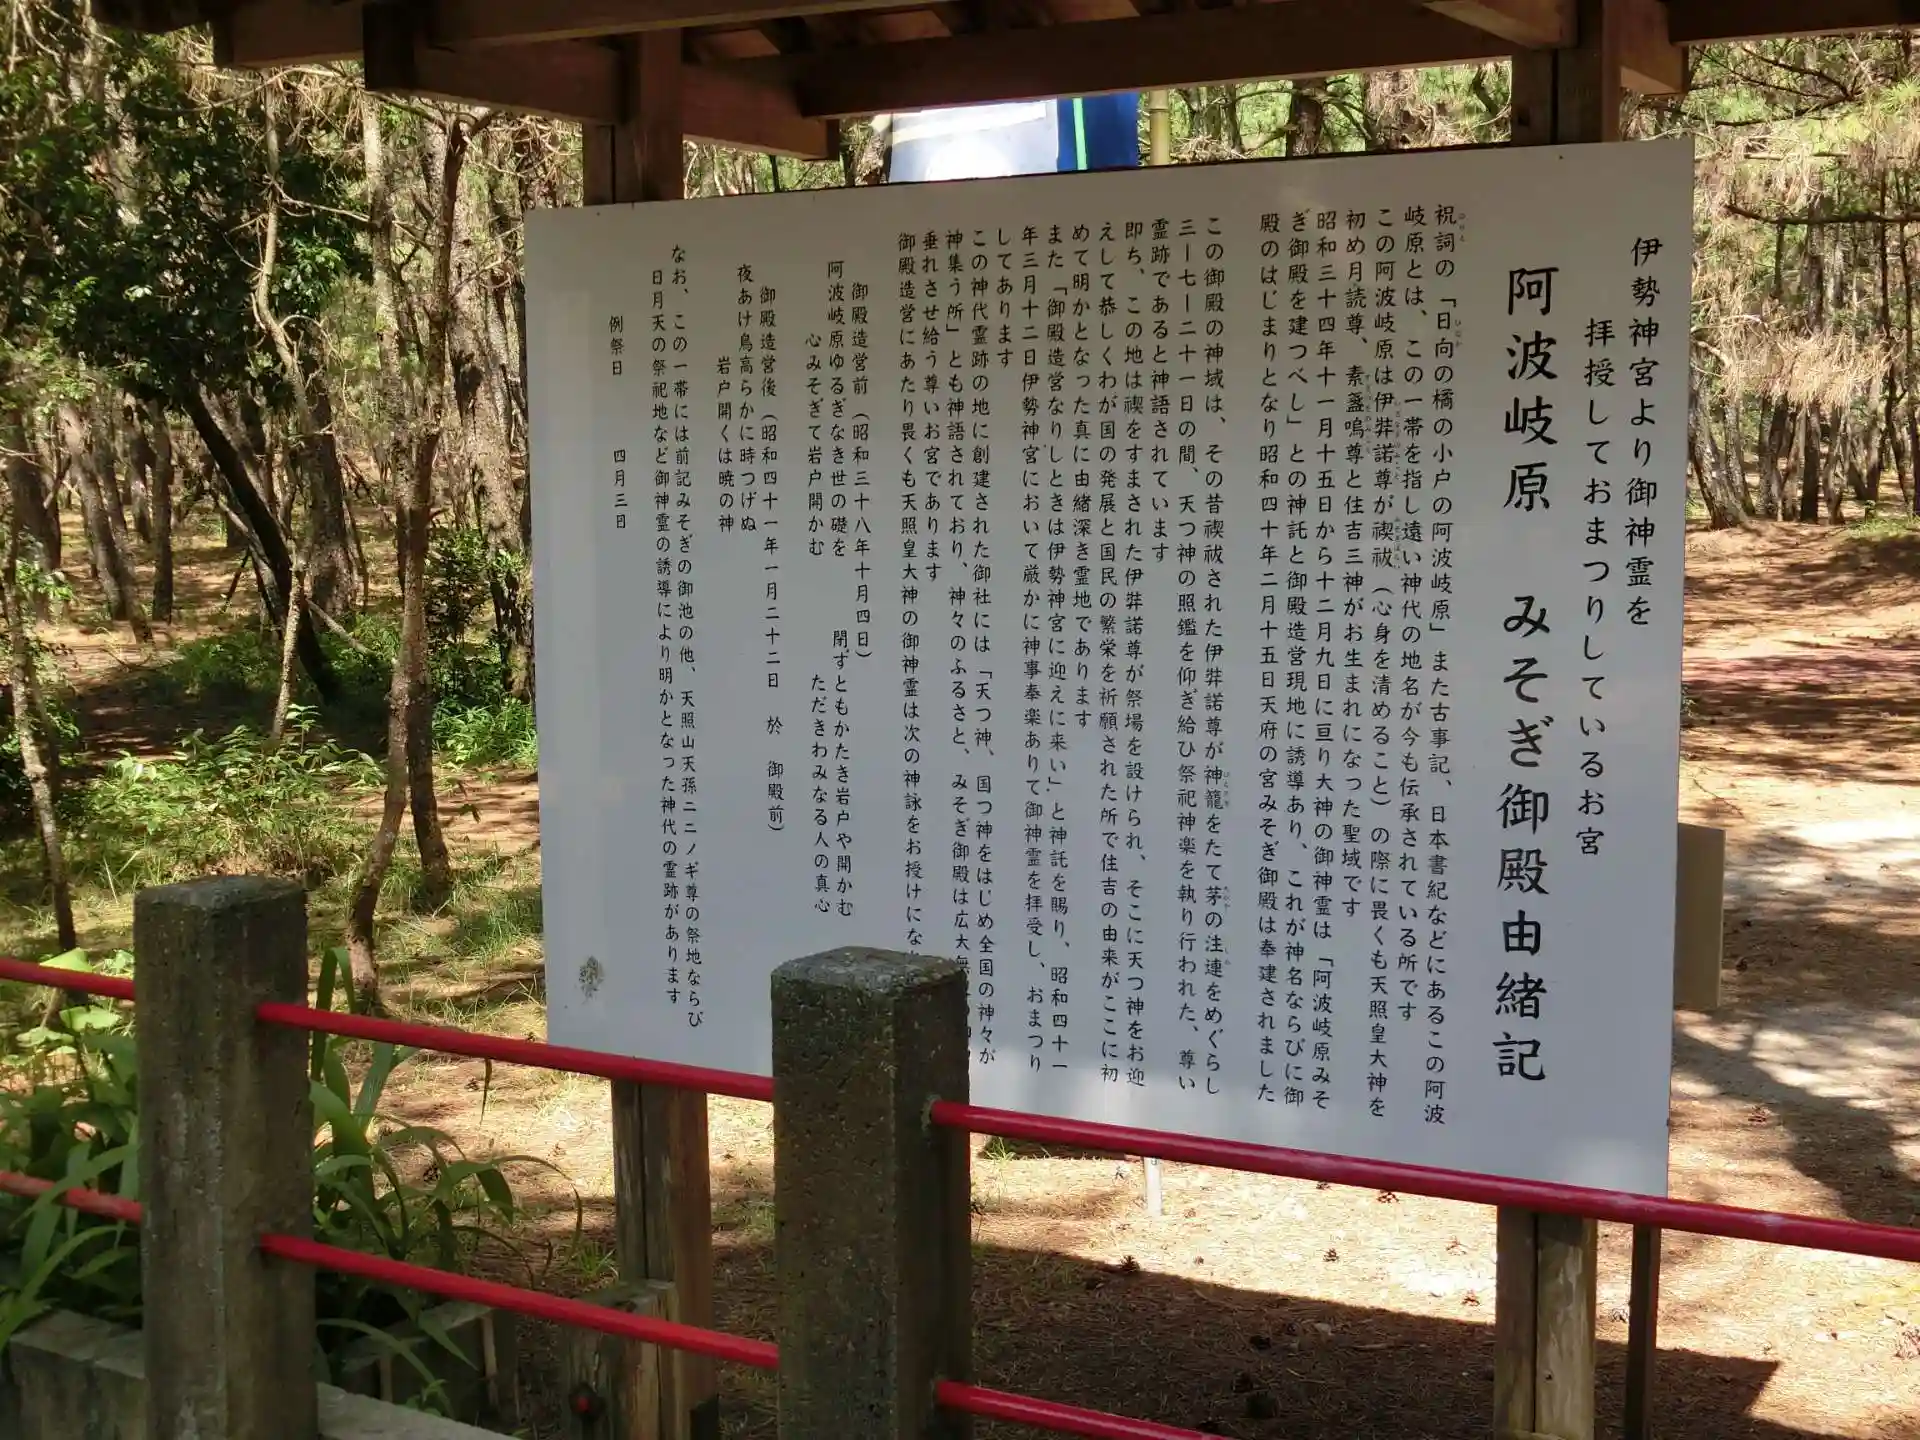 伊勢神宮より御神霊を
拝授しておまつりしているお宮
阿波岐原 みそぎ御殿由緒記
祝詞の「日向の橘の小戸の阿波岐原」また古事記、日本書紀などにあるこの阿波
岐原とは、この一帯を指し遠い神代の地名が今も伝承されている所です
この阿波岐原は伊弉諾尊が禊祓(心身を清めること)の際に畏くも天照皇大神を
初め月読尊、素盞嗚尊と住吉三神がお生まれになった聖域です
昭和三十四年十一月十五日から十二月九日に亘り大神の御神霊は「阿波岐原みそ
ぎ御殿を建つべし」との神託と御殿造営現地に誘導あり、これが神名ならびに御
殿のはじまりとなり昭和四十年二月十五日天府の宮みそぎ御殿は奉建されました
この御殿の神域は、その昔禊祓された伊弉諾尊が神籠をたて茅の注連をめぐらし
三ー七ー二十一日の間、天つ神の照鑑を仰ぎ給ひ祭祀神楽を執り行われた、尊い
霊跡であると神語されています
即ち、この地は禊をすまされた伊弉諾尊が祭場を設けられ、そこに天つ神をお迎
えして恭しくわが国の発展と国民の繁栄を祈願された所で住吉の由来がここに初
めて明かとなった真に由緒深き霊地であります
また「御殿造営なりしときは伊勢神宮に迎えに来い」と神託を賜り、昭和四十一
年三月十二日伊勢神宮において厳かに神事奉楽ありて御神霊を拝受し、おまつり
してあります
この神代霊跡の地に創建された御社には「天つ神、国つ神をはじめ全国の神々が
神集う所」とも神語されており、神々のふるさと、みそぎ御殿は広大無
垂れさせ給う尊いお宮であります
御殿造営にあたり畏くも天照皇大神の御神霊は次の神詠をお授けにな
御殿造営前(昭和三十八年十月四日)
阿波岐原ゆるぎなき世の礎を 閉ずともかたき岩戸や開かむ
心みそぎて岩戸開かむ ただきわみなる人の真心
御殿造営後(昭和四十一年一月二十二日 於 御殿前)
夜あけ鳥高らかに時つげぬ
岩戸開くは暁の神
なお、この一帯には前記みそぎの御池の他、天照山天孫ニニノギ尊の祭地ならび
日月天の祭祀地など御神霊の誘導により明かとなった神代の霊跡があります
例祭日 四月三日